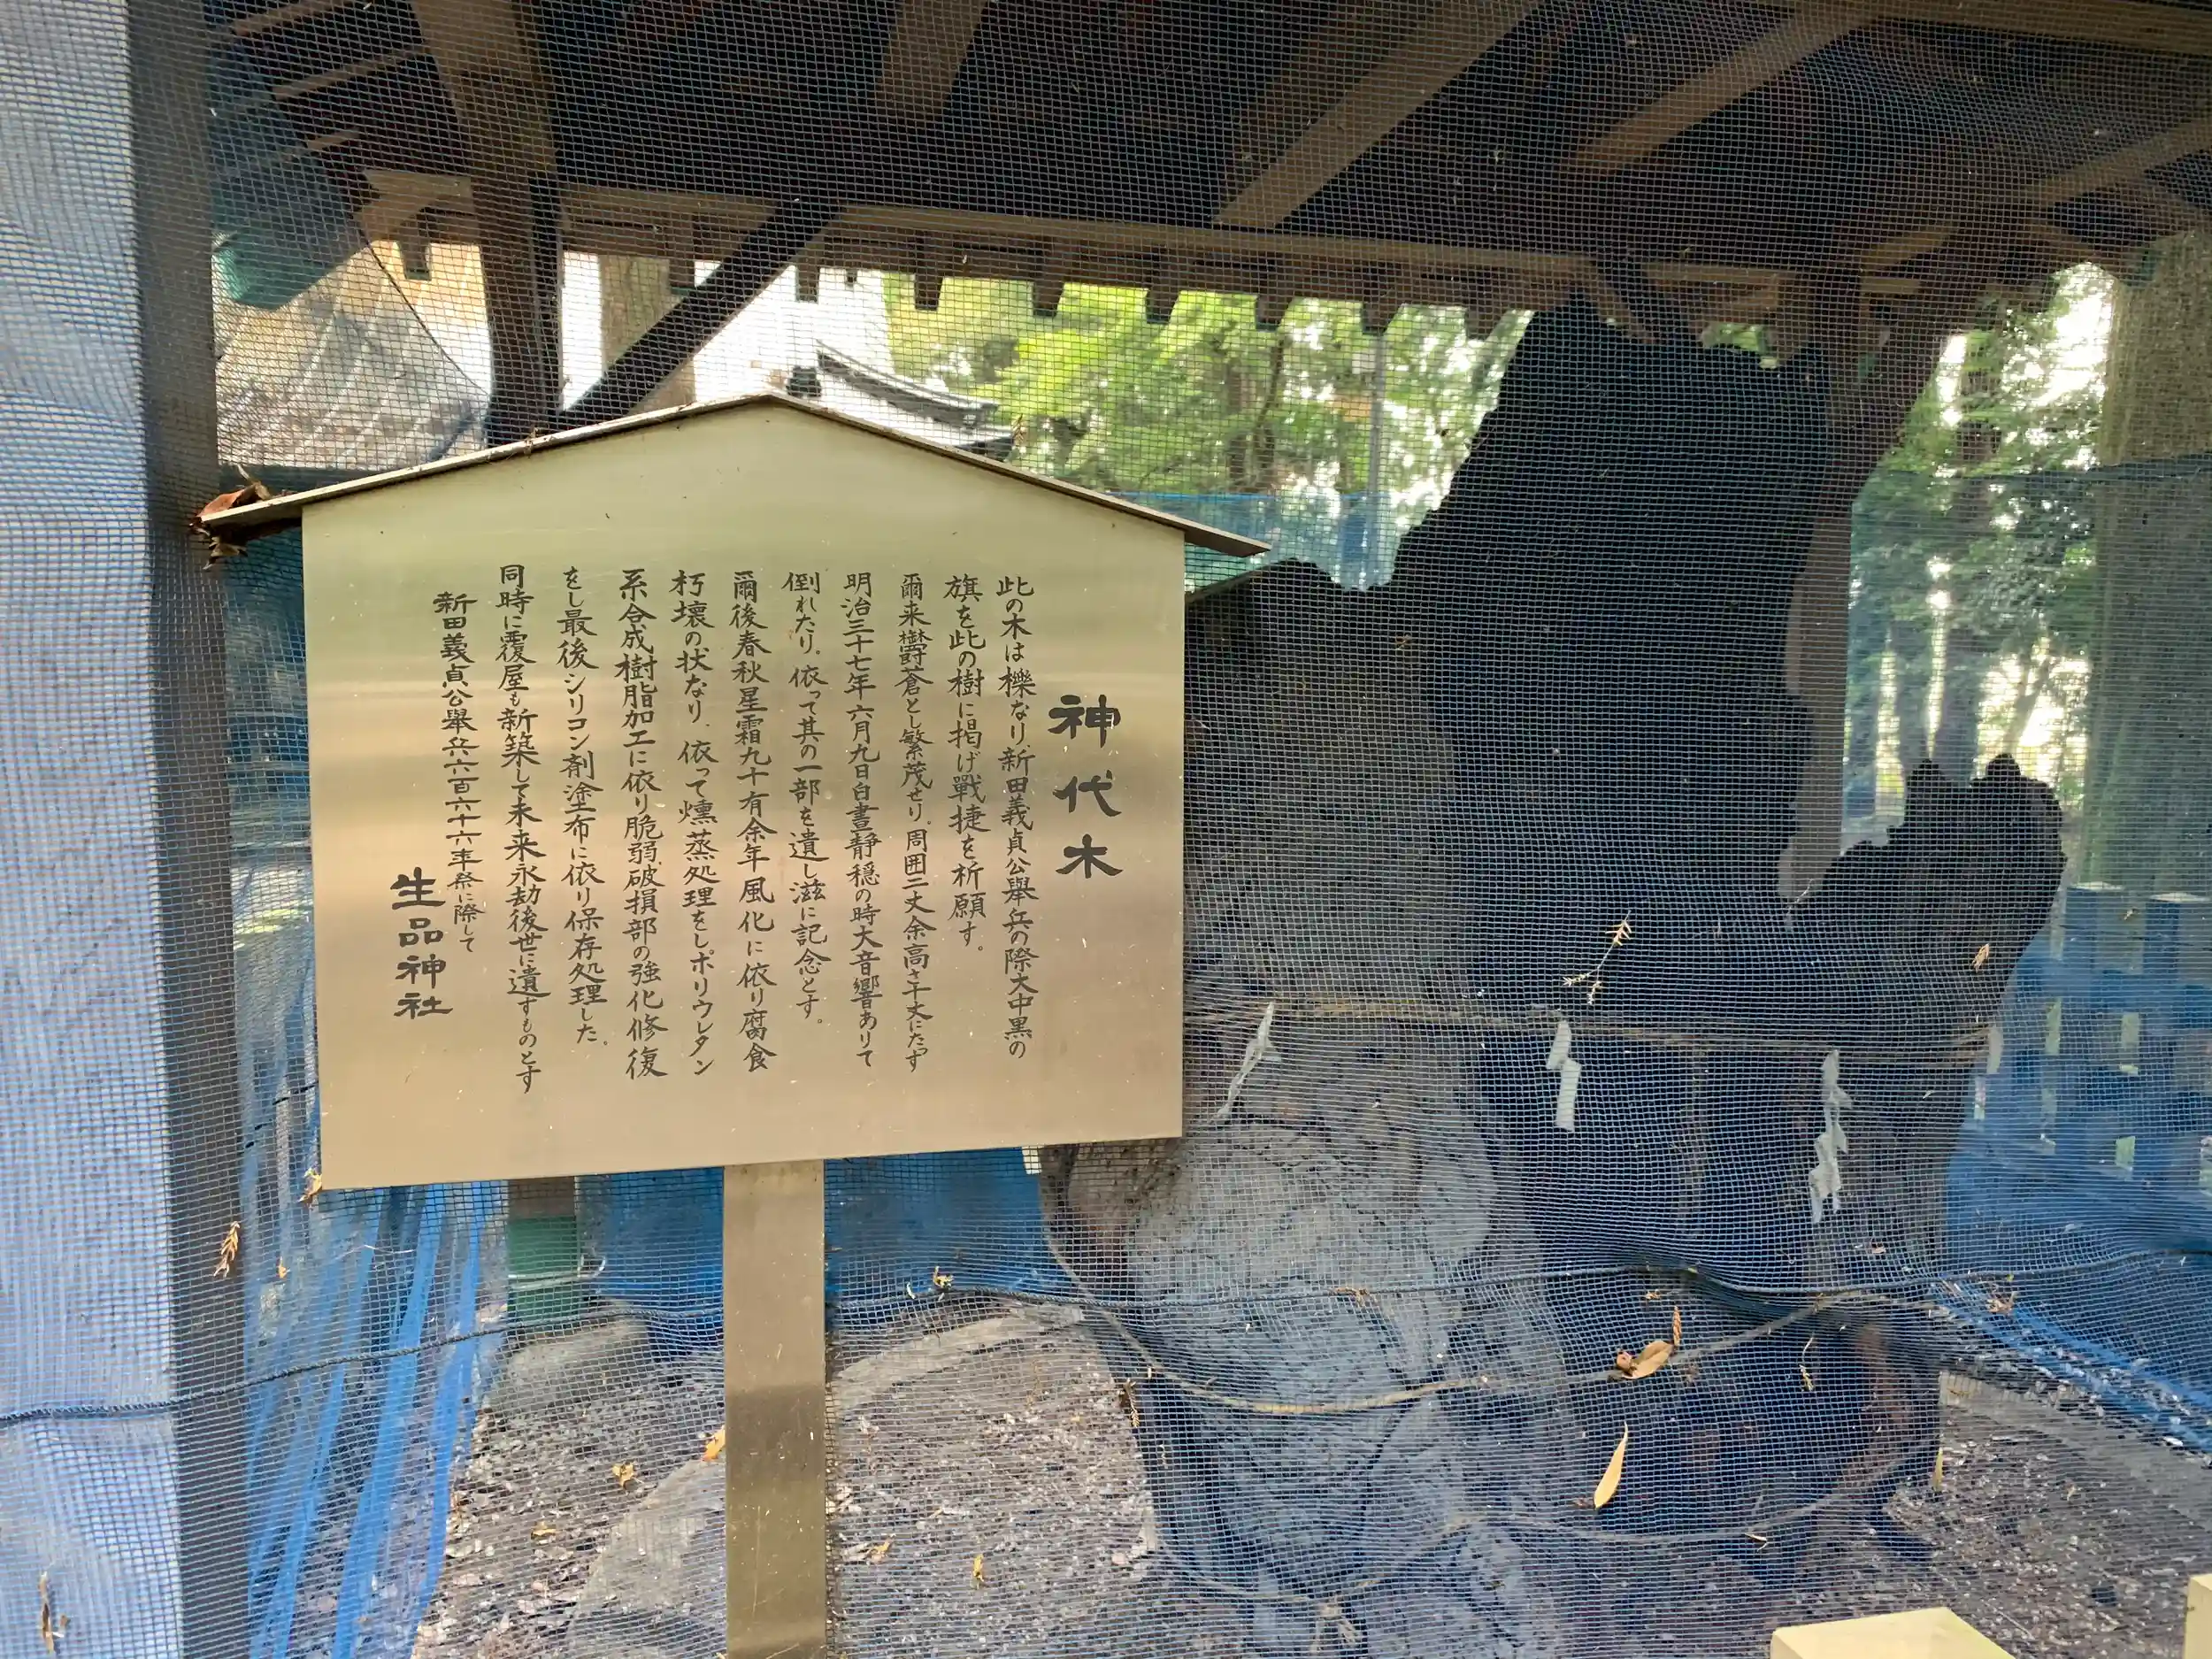 神代木
此の木は櫟なり新田義貞公擧兵の際大中黒の
旗を此の樹に掲げ戰捷を祈願す。
爾来欝蒼とし繁茂せり。周囲二丈余高さ十丈にたつす
明治三十七年六月九日白晝静穏の時大音響ありて
倒れたり。依って其の一部を遺し滋に記念とす。
爾後春秋星霜九十有余年風化に依り腐食
朽壊の状なり、依って燻蒸処理をしポリウレタン
系合成樹脂加工に依り脆弱破損部の強化修復
をし最後シリコン剤塗布に依り保存処理した。
同時に覆屋も新築して未来永劫後世に遺すものとす
新田義貞公擧兵六百六十六年祭に際して
生品神社